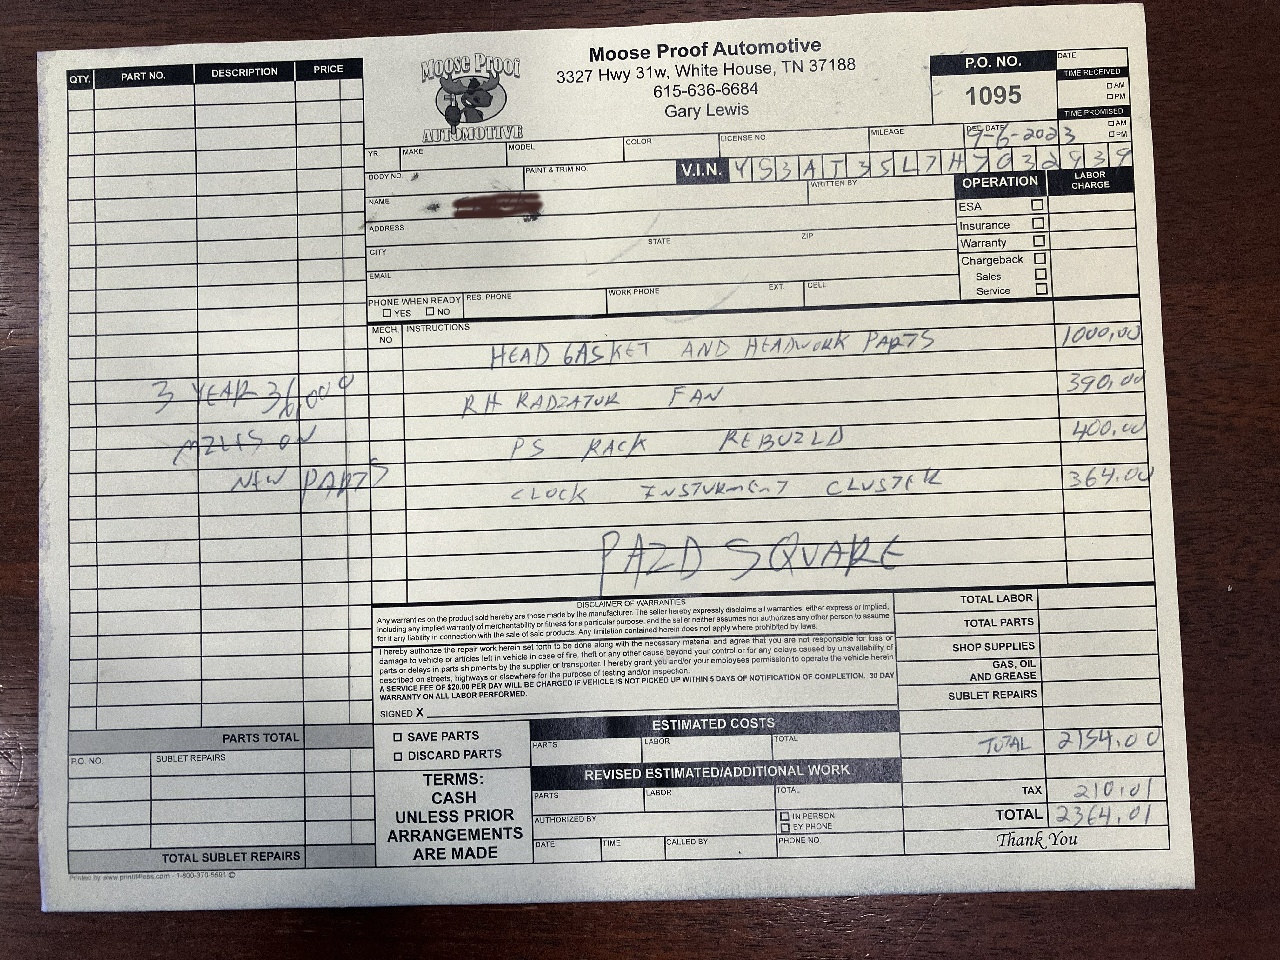 Moose Proof Automotive
3327 Hwy 31w, White House, TN 37188
615-636-6684
Gary Lewis
Moose Proof
AUTOMOTIVE
P.O. NO.
1095
DATE
TIME RECEIVED
AM
PM
TIME PROMISED
AM
PM
QTY. PART NO. DESCRIPTION PRICE
YR. MAKE MODEL COLOR LICENSE NO. MILEAGE DEL. DATE
9-6-2023
BODY NO. PAINT & TRIM NO. V.I.N. YS3AT35L7H7032939
NAME WRITTEN BY
ADDRESS
STATE ZIP
CITY
EMAIL
PHONE WHEN READY RES. PHONE WORK PHONE EXT. CELL
YES NO
OPERATION LABOR CHARGE
ESA
Insurance
Warranty
Chargeback
Sales
Service
MECH. NO INSTRUCTIONS
HEAD GASKET AND HEADWORK PARTS 1000,00
RH RADIATUR FAN 390,00
PS RACK REBUILD 400.00
CLOCK INSTURMENT CLUSTER 364.00
PAID SQUARE
3 YEAR 36,000
MILES ON
NEW PARTS
DISCLAIMER OF WARRANTIES
Any warranties on the product sold hereby are those made by the manufacturer. The seller hereby expressly disclaims all warranties, either express or implied,
including any implied warranty of merchantability or fitness for a particular purpose, and the seller neither assumes nor authorizes any other person to assume
for it any liability in connection with the sale of said products. Any limitation contained herein does not apply where prohibited by laws.
I hereby authorize the repair work herein set forth to be done along with the necessary material and agree that you are not responsible for loss or
damage to vehicle or articles left in vehicle in case of fire, theft or any other cause beyond your control or for any delays caused by unavailability of
parts or delays in parts shipments by the supplier or transporter. I hereby grant you and/or your employees permission to operate the vehicle herein
described on streets, highways or elsewhere for the purpose of testing and/or inspection.
A SERVICE FEE OF $20.00 PER DAY WILL BE CHARGED IF VEHICLE IS NOT PICKED UP WITHIN 5 DAYS OF NOTIFICATION OF COMPLETION. 30 DAY
WARRANTY ON ALL LABOR PERFORMED.
SIGNED X
TOTAL LABOR
TOTAL PARTS
SHOP SUPPLIES
GAS, OIL
AND GREASE
SUBLET REPAIRS
TOTAL 2154.00
TAX 210.01
TOTAL 2364.01
Thank You
PARTS TOTAL
P.O. NO. SUBLET REPAIRS
TOTAL SUBLET REPAIRS
SAVE PARTS
DISCARD PARTS
TERMS:
CASH
UNLESS PRIOR
ARRANGEMENTS
ARE MADE
ESTIMATED COSTS
PARTS LABOR TOTAL
REVISED ESTIMATED/ADDITIONAL WORK
PARTS LABOR TOTAL
AUTHORIZED BY IN PERSON
BY PHONE
DATE TIME CALLED BY PHONE NO.